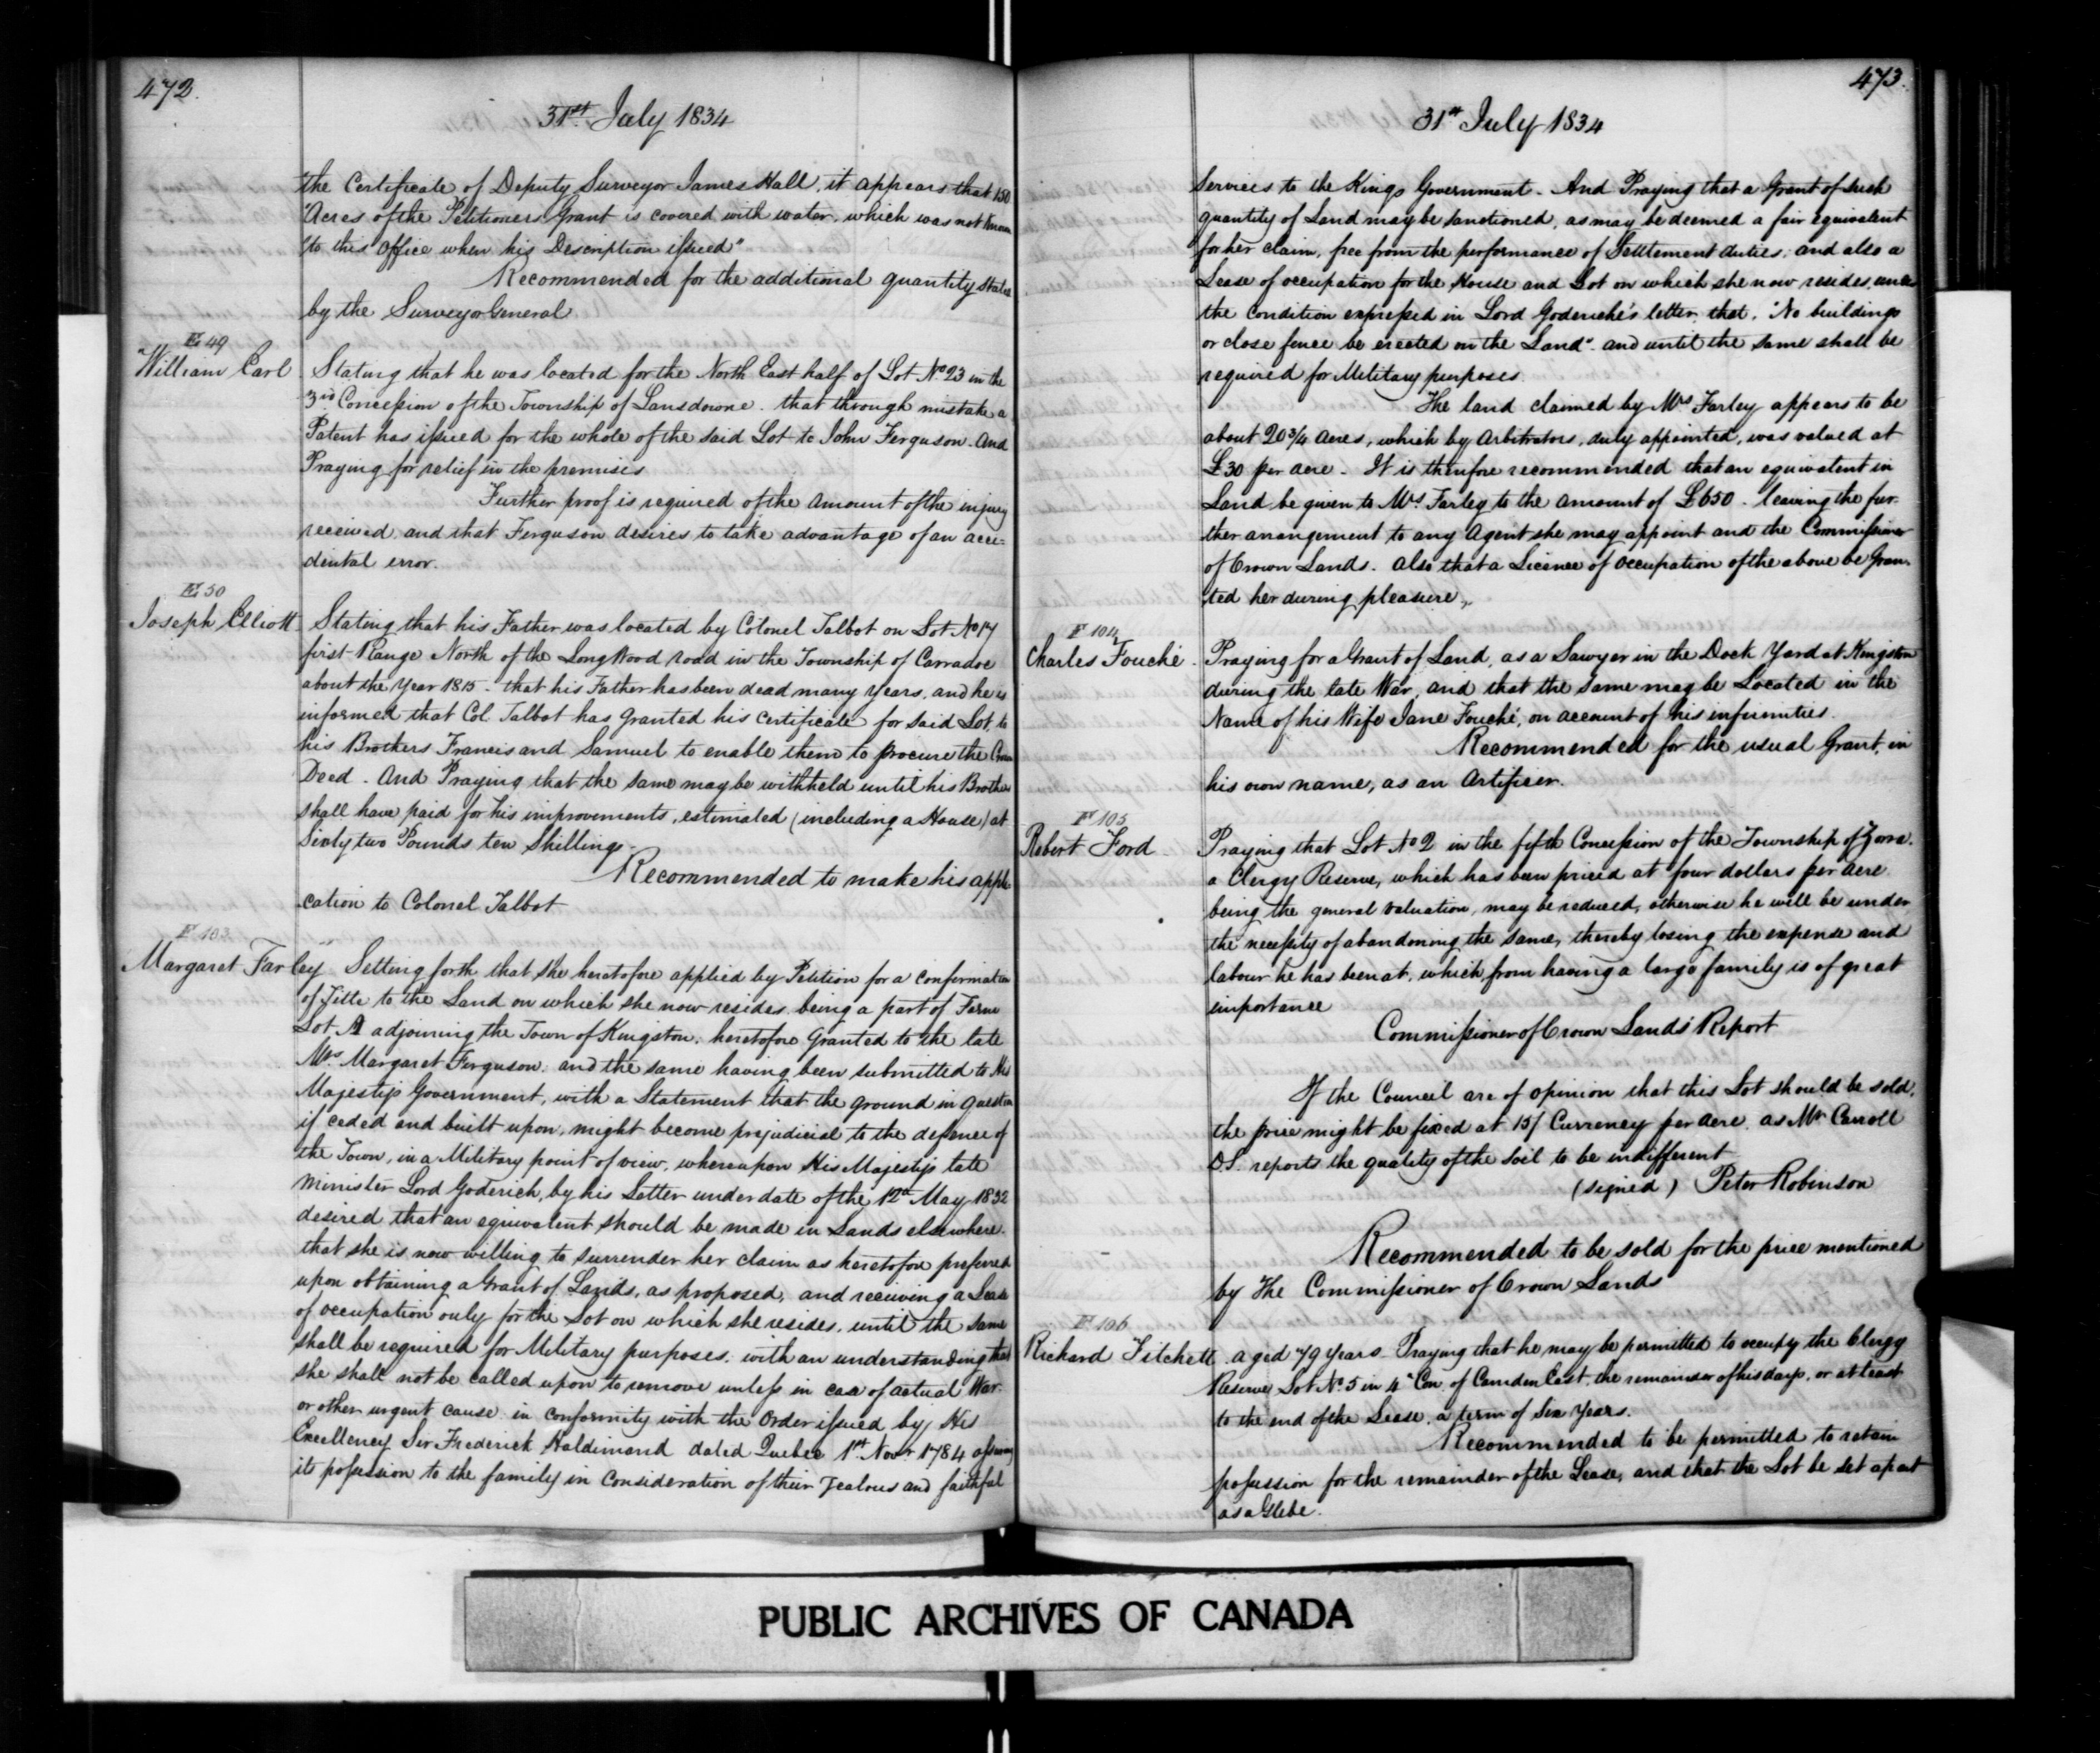 472.
31st July 1834
"the Certificate of Deputy Surveyor James Hall, it appears that 150
"Acres of the Petitioners Grant is covered with water, which was not known
"to this office when his Description issued"
Recommended for the additional quantity stated
by the Surveyor General
E 49
William Earl
Stating that he was located for the North East half of Lot No 23 in the
3rd Concession of the Township of Lansdowne. that through mistake a
Patent has issued for the whole of the said Lot to John Ferguson. And
Praying for relief in the premises
Further proof is required of the amount of the injury
received and that Ferguson desires to take advantage of an acci=
dental error.
E 50
Joseph Elliott
Stating that his Father was located by Colonel Talbot on Lot No 17
first Range North of the Long Wood road in the Township of Carradoc
about the Year 1815 - that his Father has been dead many years, and he is
informed that Col Talbot has Granted his Certificate for said Lot, to
his Brothers Francis and Samuel to enable them to procure the Crown
Deed. And Praying that the same may be withheld until his Brothers
shall have paid for his improvements, estimated (including a House) at
Sixty two Pounds ten Shillings.
Recommended to make his appli
cation to Colonel Talbot
F 103
Margaret Farley Setting forth that she heretofore applied by Petition for a confirmation
of Title to the Land on which she now resides being a part of Farm
Lot A adjoining the Town of Kingston, heretofore Granted to the late
Mrs Margaret Ferguson, and the same having been submitted to His
Majesty's Government, with a Statement that the ground in question
if ceded and built upon, might become prejudicial to the defence of
the Town, in a Military point of view, whereupon His Majesty's late
Minister Lord Goderich, by his Letter under date of the 12th May 1832
desired that an equivalent should be made in Lands elsewhere.
that she is now willing to surrender her claim as heretofore preferred
upon obtaining a Grant of Lands, as proposed, and receiving a Lease
of occupation only for the Lot on which she resides, until the same
shall be required for Military purposes, with an understanding that
she shall not be called upon to remove unless in case of actual War
or other urgent cause in conformity with the Order issued by His
Excellency Sir Frederick Haldimand dated Quebec 1st Novr 1784 assuring
its possession to the family in consideration of their Zealous and faithful
473.
31st July 1834
Services to the Kings Government. And Praying that a Grant of such
quantity of Land may be sanctioned, as may be deemed a fair equivalent
for her claim, free from the performance of Settlement duties, and also a
Lease of occupation for the House and Lot on which she now resides, under
the condition expressed in Lord Goderiche's letter that, "No buildings
or close fence be erected on the Land" and until the same shall be
required for Military purposes
The land claimed by Mrs Farley appears to be
about 20 3/4 Acres, which by Arbitrators, duly appointed, was valued at
£30 per acre. It is therefore recommended that an equivalent in
Land be given to Mrs Farley to the amount of £650. leaving the fur-
ther arrangement to any Agent she may appoint and the Commissioner
of Crown Lands. Also that a Licence of Occupation of the above be Gran-
ted her during pleasure.
F 104
Charles Fouché.
Praying for a Grant of Land, as a Sawyer in the Dock Yard at Kingston
during the late War, and that the same may be Located in the
Name of his Wife Jane Fouché, on account of his infirmities.
Recommended for the usual Grant, in
his own name, as an Artificer.
F 105
Robert Ford
Praying that Lot No 2 in the fifth Concession of the Township of Zorra.
a Clergy Reserve, which has been priced at four dollars per Acre
being the general valuation, may be reduced, otherwise he will be under
the necessity of abandoning the same, thereby losing the expense and
labour he has been at, which from having a large family is of great
importance
Commissioner of Crown Lands' Report
If the Council are of opinion that this Lot should be sold,
the price might be fixed at 15/ Currency per Acre. as Mr Carroll
D.S. reports the quality of the soil to be indifferent
(signed) Peter Robinson
Recommended to be sold for the price mentioned
by The Commissioner of Crown Lands
F 106
Richard Fitchett
aged 79 Years. Praying that he may be permitted to occupy the Clergy
Reserve Lot No. 5 in 4th Con. of Camden East, the remainder of his days, or at least
to the end of the Lease, a term of Six Years.
Recommended to be permitted to retain
possession for the remainder of the Lease, and that the Lot be set apart
as a Glebe.
PUBLIC ARCHIVES OF CANADA